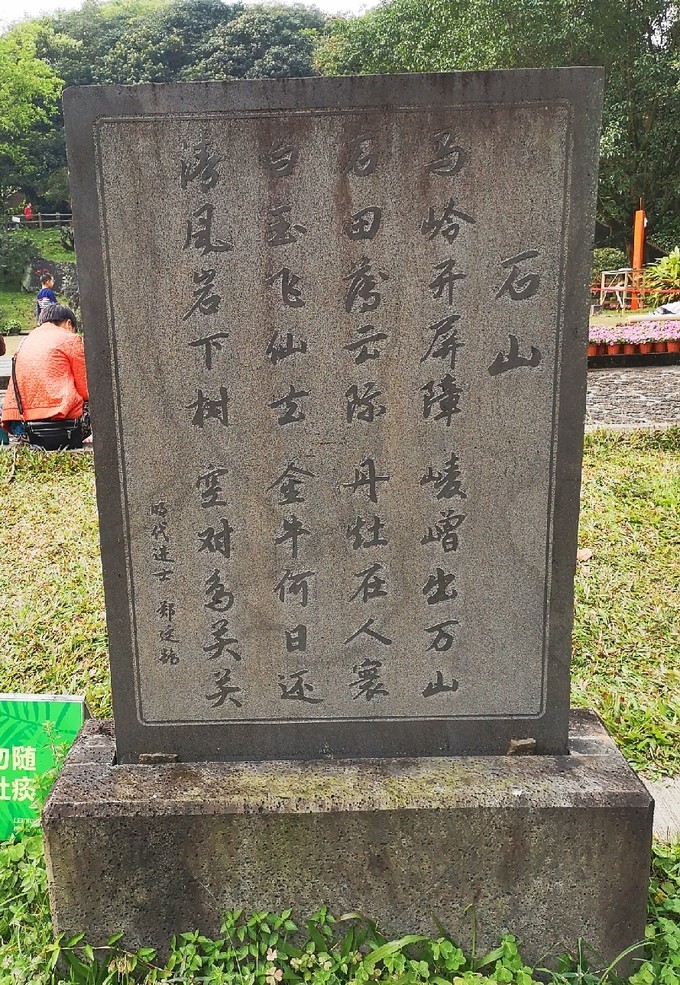 石山
马岭开屏障 崚嶒出万山
石田薄云际 丹灶在人寰
白玉飞仙去 金牛何日还
清风岩下树 空对鸟关关
明代进士 郑廷鹄
勿随
吐痰